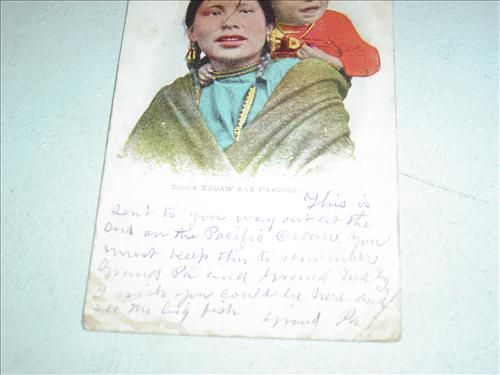 SIOUX SQUAW AND PAPOOSE.
This is
sent to you way out at the
End on the Pacific Ocean. you
must keep this to remember
Grand Pa and Grand Ma by
I wish you could be here and
see the big fish
Grand Pa